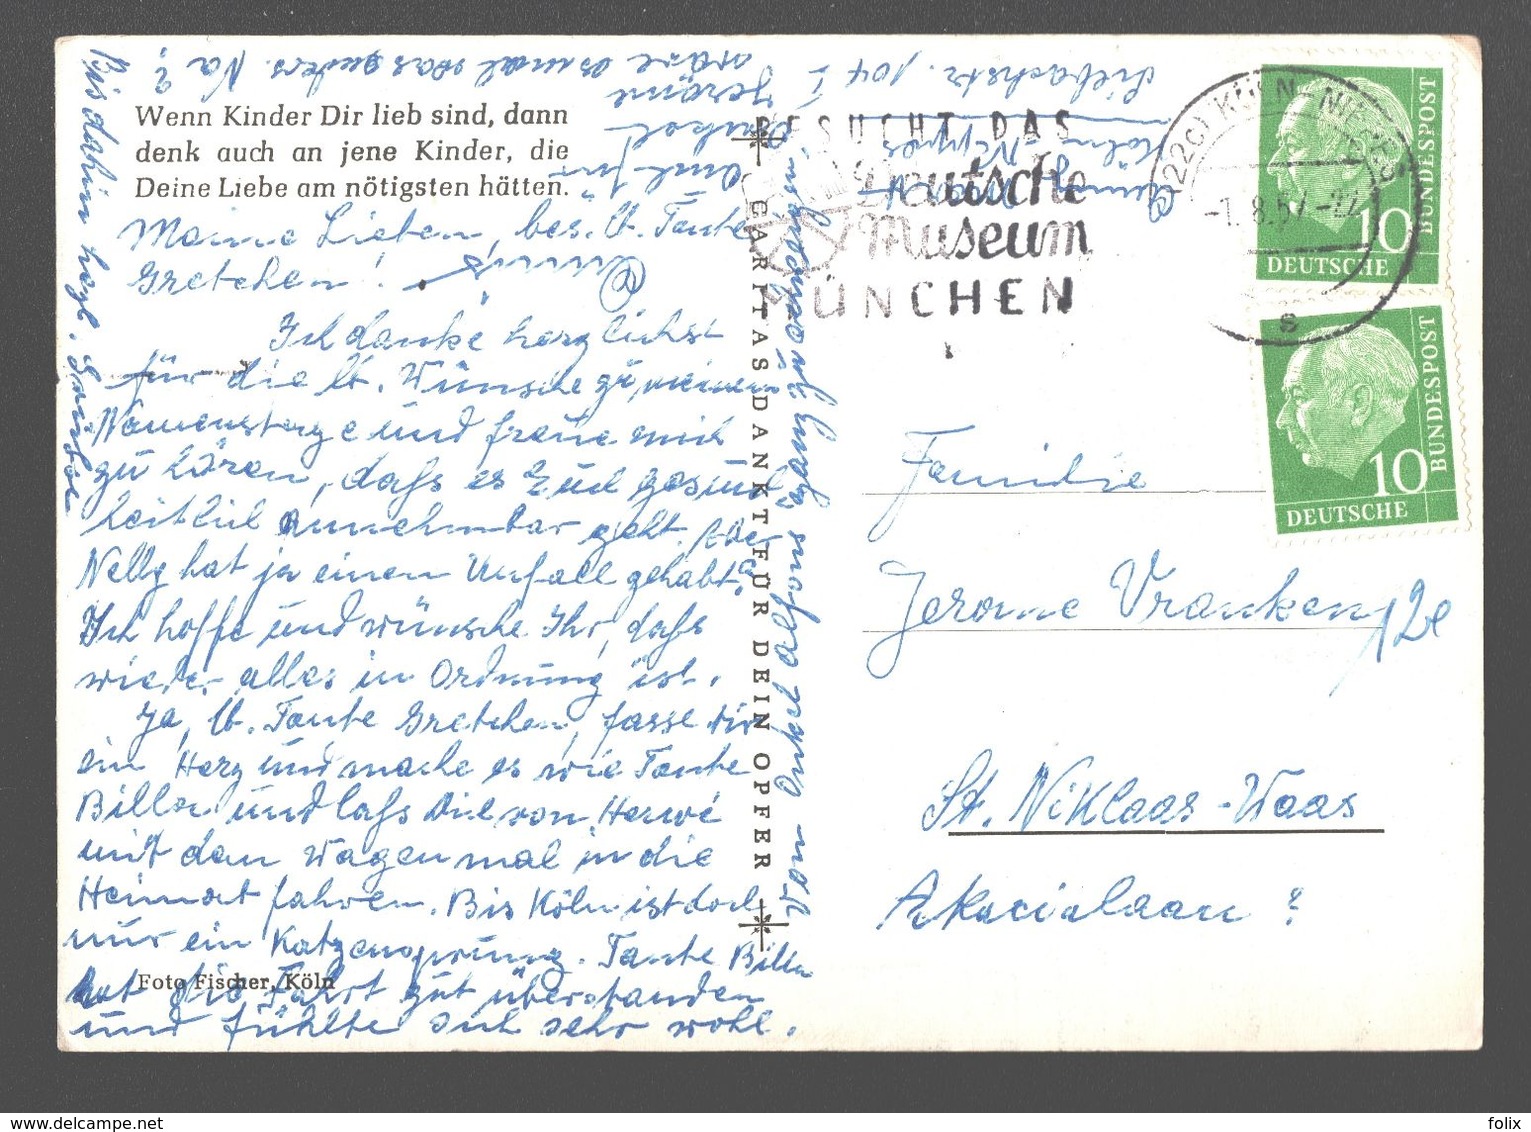 Wenn Kinder Dir lieb sind, dann
denk auch an jene Kinder, die
Deine Liebe am nötigsten hätten.
Meine Lieben, bes. lb. Tante
Gretchen!
Ich danke herzlichst
für die lb. Wünsche zu meinem
Namenstage und freue mich
zu hören, dass es Euch gesund-
heitlich annehmbar geht. Aber
Nelly hat ja einen Unfall gehabt.
Ich hoffe und wünsche Ihr, dass
wieder alles in Ordnung ist.
Ja, lb. Tante Gretchen, fasse Dir
ein Herz und mache es wie Tante
Billa und lass Dich von Herwé
mit dem Wagen mal in die
Heimat fahren. Bis Köln ist doch
nur ein Katzensprung. Tante Billa
hat die Fahrt gut überstanden
und fühlte sich sehr wohl.
Foto Fischer, Köln
Von Onkel Alfons
Auch für
Onkel
Jerôme
wäre es mal was anders. Na?
Bis dahin herzl. Grüße
Köln-Nippes
Silbachstr. 104 I
CARITAS DANKT FÜR DEIN OPFER
BESUCHT DAS
Deutsche
Museum
MÜNCHEN
(22c) KÖLN-NIPPES
-1.8.57.-22
s
BUNDESPOST
10
DEUTSCHE
BUNDESPOST
10
DEUTSCHE
Familie
Jerome Vranken
12e
St. Niklaas-Waas
Akacialaan ?
felix
delcampe.net